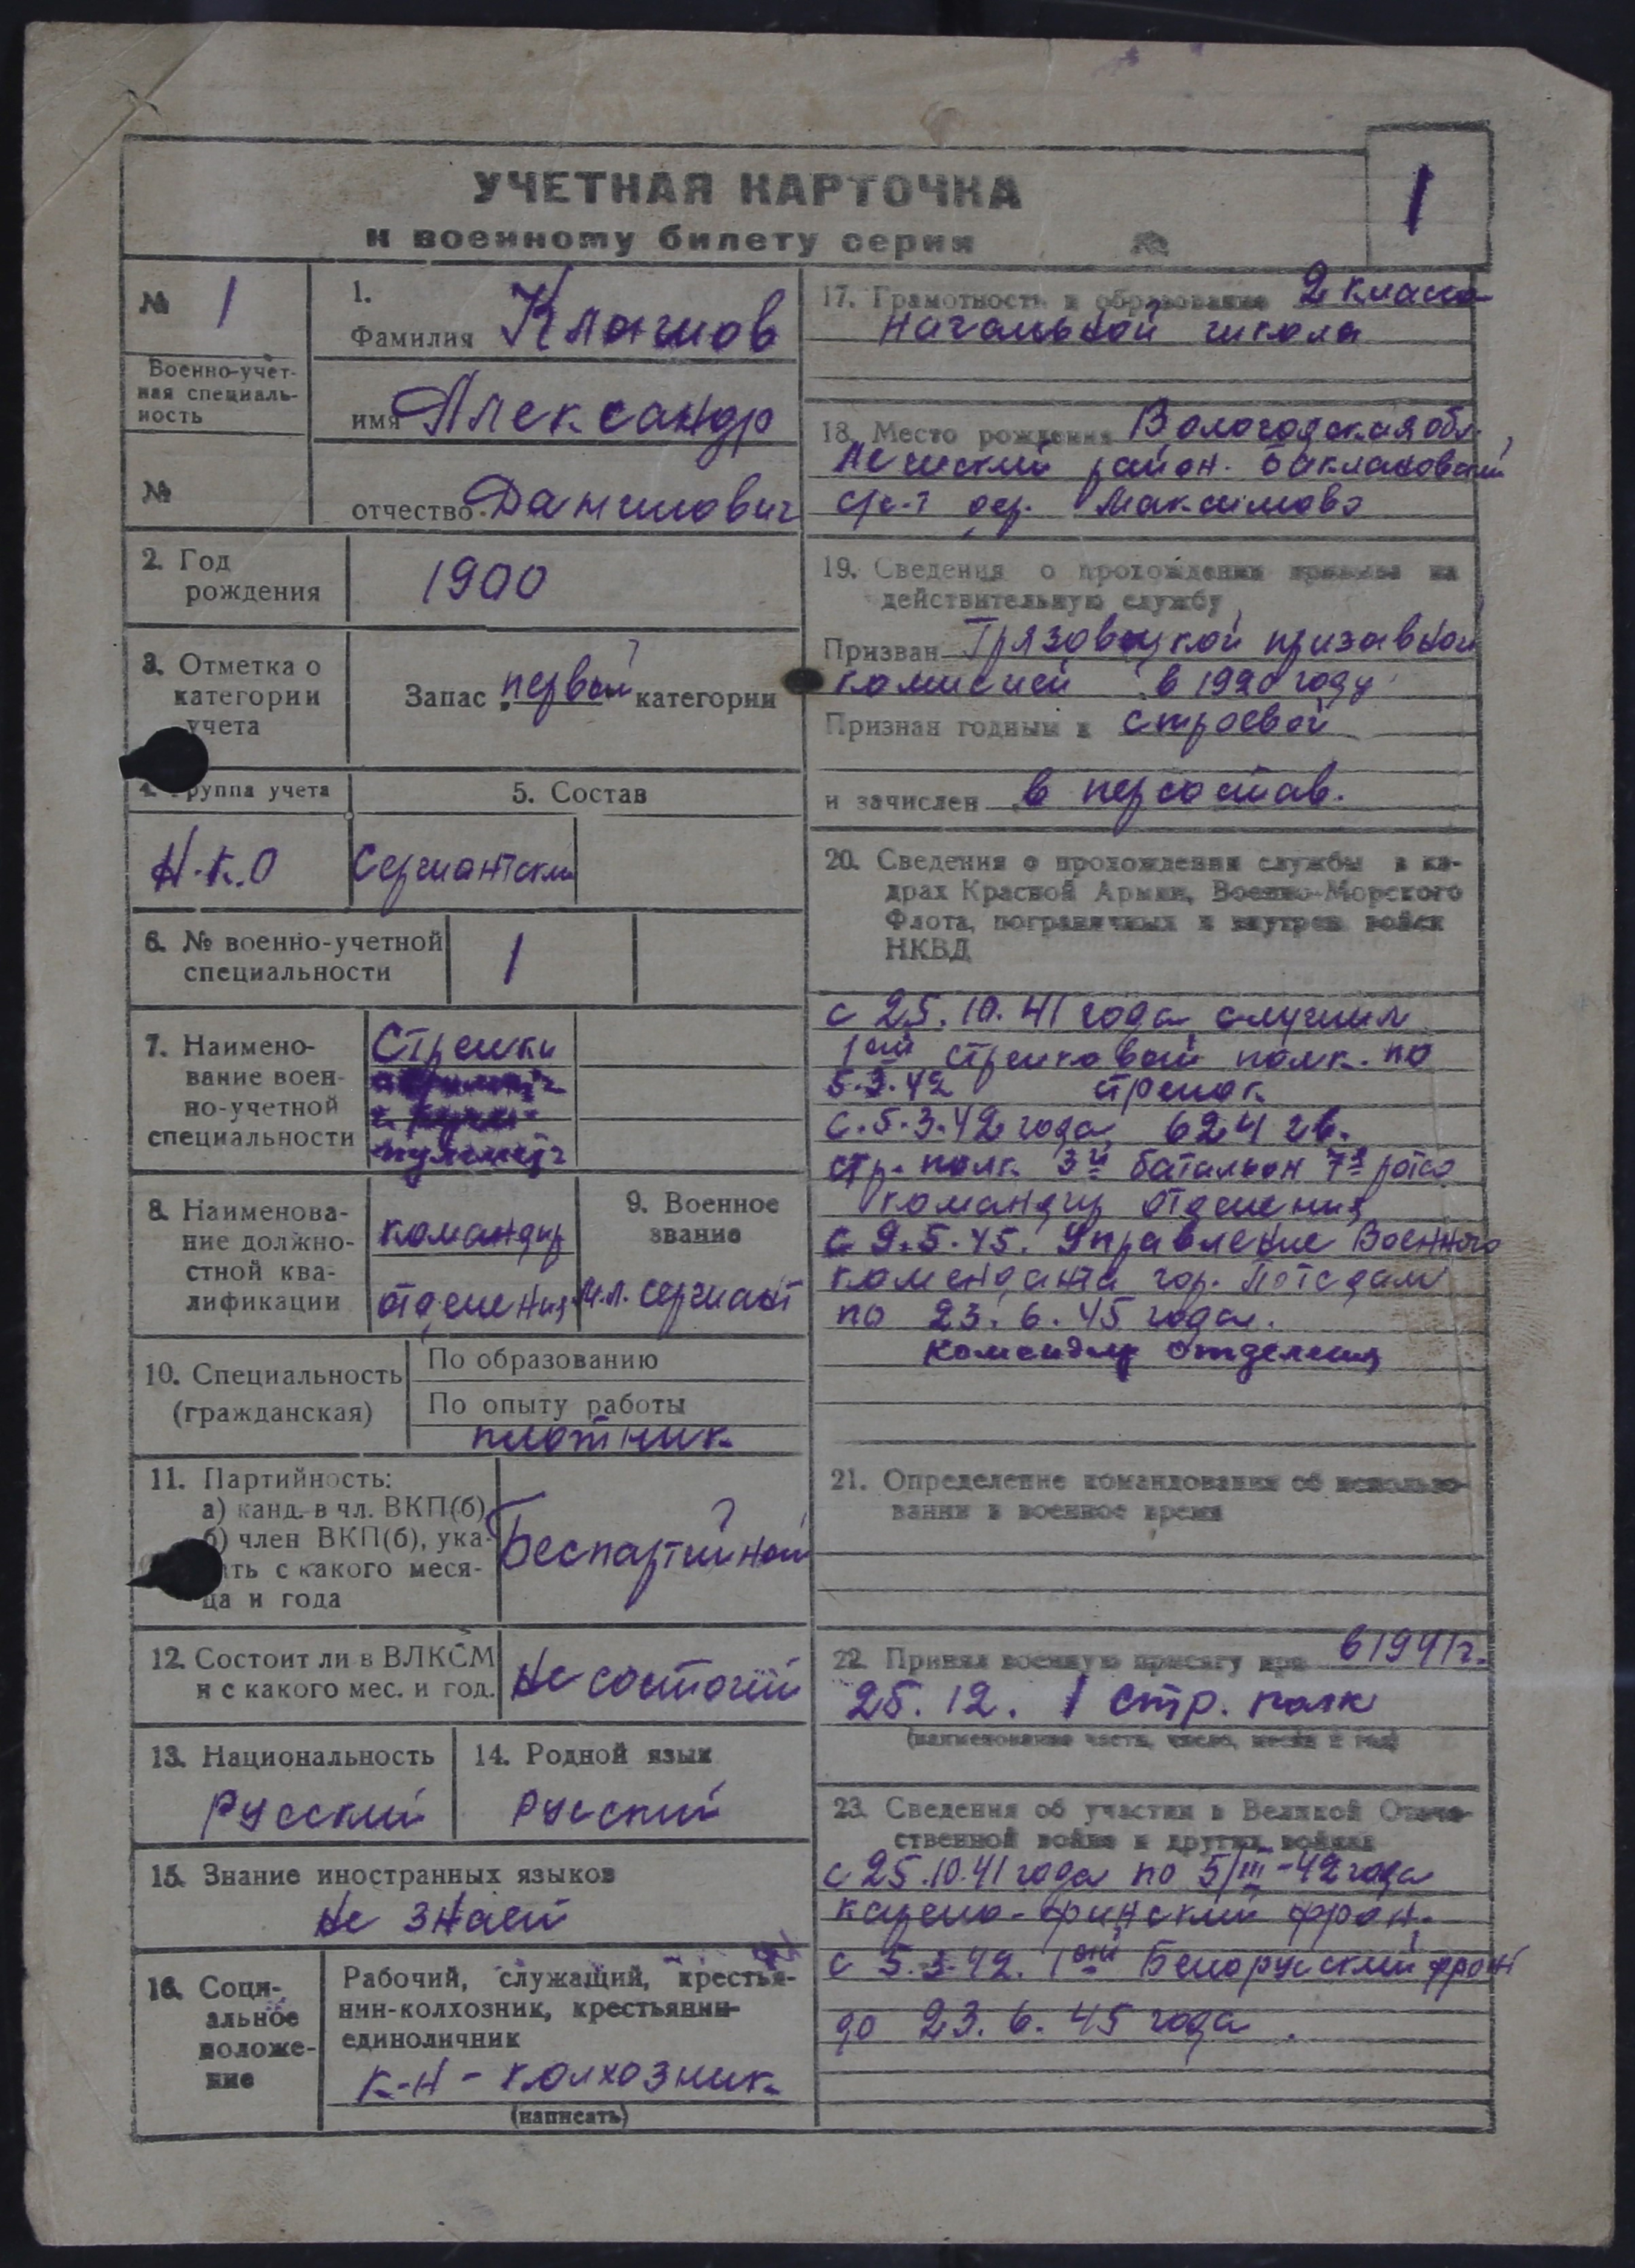 УЧЕТНАЯ КАРТОЧКА
к военному билету серия №
1
№ 1
Военно-учет-
ная специаль-
ность
№
1.
Фамилия
имя Александр
отчество
2. Год
рождения
1900
3. Отметка о
категории
учета
Запас первой категории
4. Группа учета
5. Состав
Н.К.О
Сержантский
6. № военно-учетной
специальности
1
7. Наимено-
вание воен-
но-учетной
специальности
Стрелки
8. Наименова-
ние должно-
стной ква-
лификации
командир
отделения
9. Военное
звание
мл. сержант
10. Специальность
(гражданская)
По образованию
По опыту работы
плотник
11. Партийность:
а) канд. в чл. ВКП(б)
б) член ВКП(б), ука-
ать с какого меся-
ца и года
Беспартийной
12. Состоит ли в ВЛКСМ
и с какого мес. и год.
Не состоит
13. Национальность
Русский
14. Родной язык
Русский
15. Знание иностранных языков
Не знает
16. Соци-
альное
положе-
ние
Рабочий, служащий, крестья-
нин-колхозник, крестьянин-
единоличник
к-н - колхозник
(написать)
17. Грамотность и образование 2 класса
начальной школа
18. Место рождения Вологодская обл.
район. Баклановский
с/с-т дер. Максимово
19. Сведения о прохождении призыва на
действительную службу
Призван Грязовецкой призавной
комисией в 1920 году
Признан годным к строевой
и зачислен в персостав.
20. Сведения о прохождении службы в ка-
драх Красной Армии, Военно-Морского
Флота, пограничных и внутрен войск
НКВД
с 25.10.41 года служил
1ой стрелковый полк. по
5.3.42 стрелок
с.5.3.42 года 624 гв.
стр. полк. 3й батальон 7я рота
командир отделения
с 9.5.45. Управление Военного
коменданта гор. Потсдам
по 23.6.45 года.
командир отделения
21. Определение командования об использо-
вании в военное время
22. Принял военную присягу при в 1941г.
25.12. 1 стр. полк
(наименование части, число, месяц и год)
23. Сведения об участии в Великой Отече-
ственной войне и других войнах
с 25.10.41 года по 5/III-42 года
карело-финский фрон.
с 5.3.42. 1ой Белоруский фронт
до 23.6.45 года.